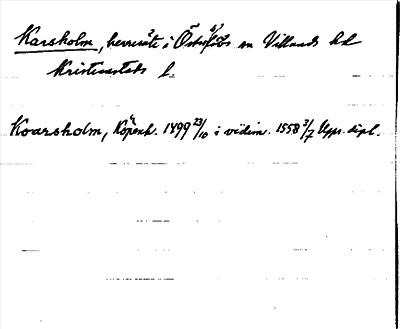 Karsholm, herresäte i Österslövs sn Villands hd
Kristianstads l.
Koarsholm, Köpenh. 1499 23/10 i vidim. 1558 3/7 Upps. dipl.